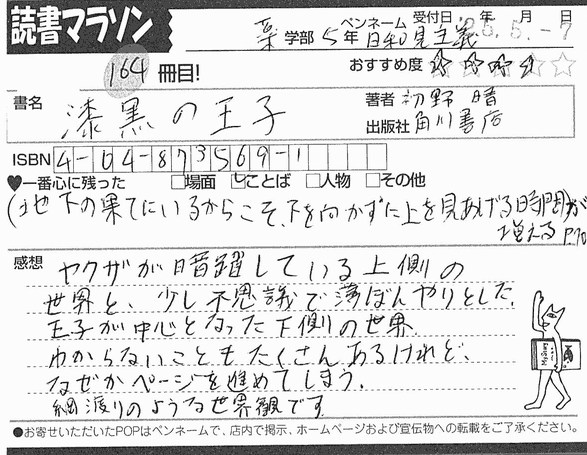 読書マラソン
薬学部 5年 ペンネーム 日和見主義 受付日 '05年5月-7日
164冊目!
おすすめ度
書名 漆黒の王子
著者 初野 晴
出版社 角川書店
ISBN 4-04-873569-1
♥一番心に残った □場面 □ことば □人物 □その他
(地下の果てにいるからこそ、下を向かずに上を見あげる時間)が
増える P.70
感想 ヤクザが暗躍している上側の
世界と、少し不思議で薄ぼんやりとした
王子が中心となった下側の世界.
わからないこともたくさんあるけれど、
なぜかページを進めてしまう.
綱渡りのような世界観です
●お寄せいただいたPOPはペンネームで、店内で掲示、ホームページおよび宣伝物への転載をご了承ください。